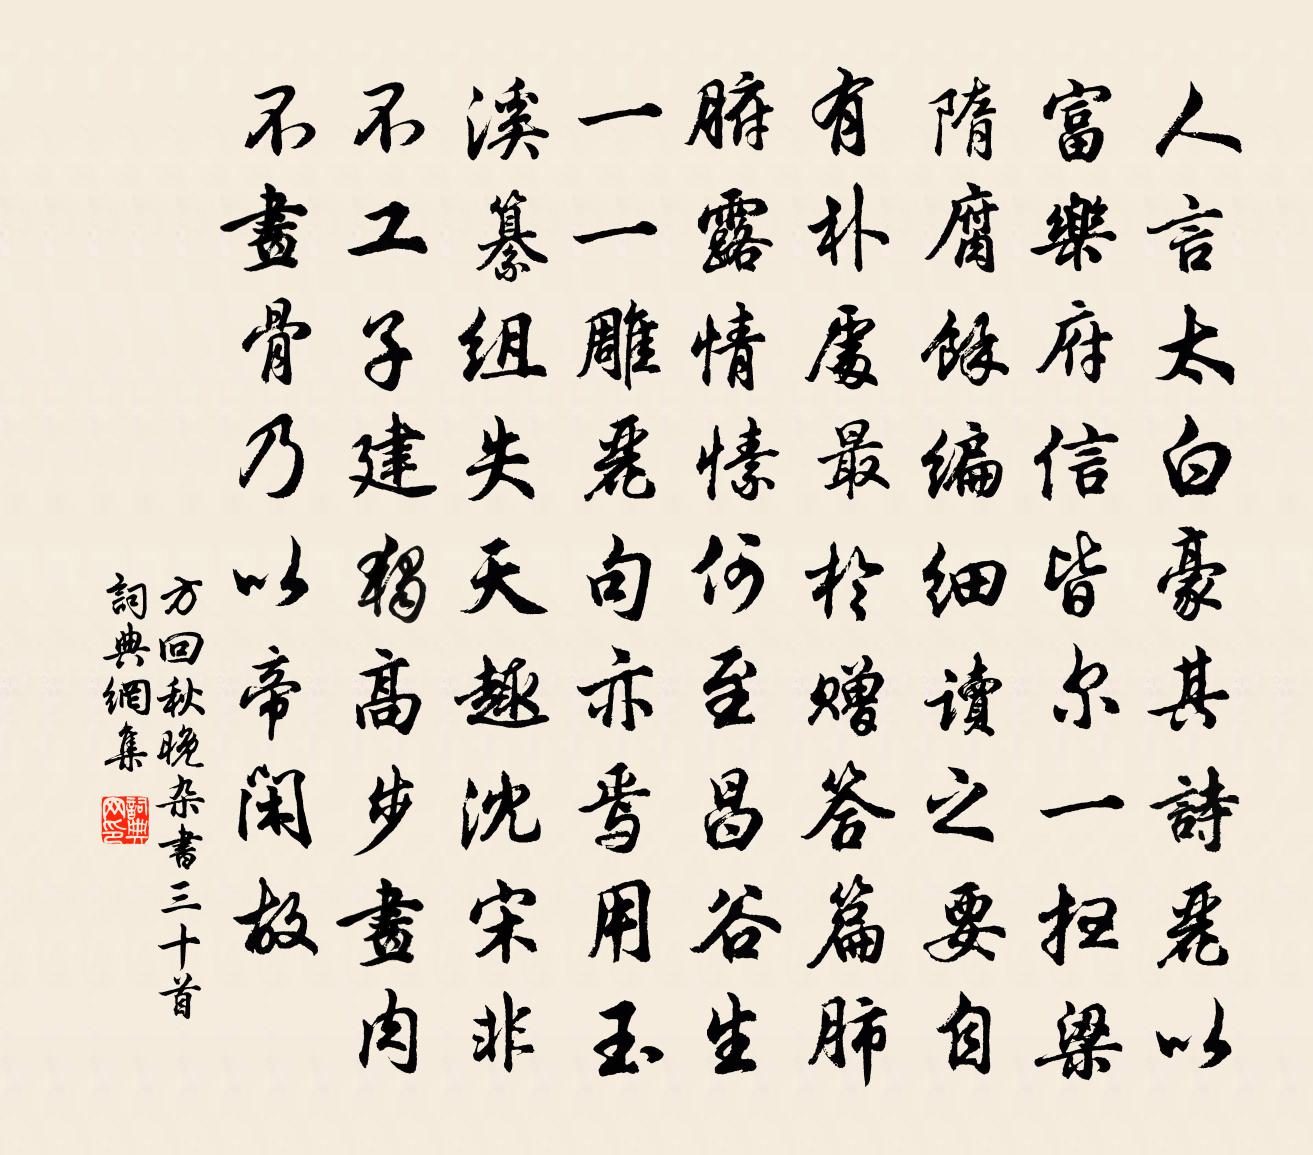 人言太白豪其詩麗以
富樂府信皆尔一掃梁
隋腐餘編細讀之要自
有朴處最於贈答篇肺
腑露情愫何至昌谷生
一一雕麗句亦焉用玉
溪纂組失天趣沈宋非
不工子建獨高步畫肉
不畫骨乃以帝閑故
方回秋晚杂書三十首
詞典網集
詞典网印